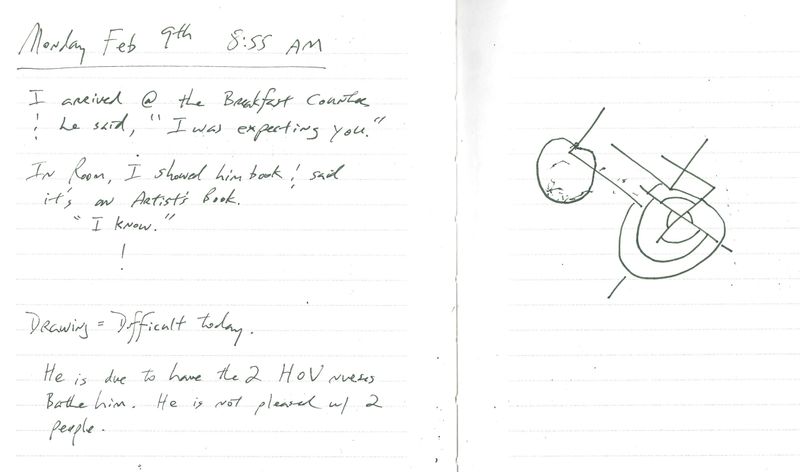 Monday Feb 9th 8:55 AM
I arrived @ the Breakfast Counter
! he said, "I was expecting you."
In Room, I showed him book ! said
it's an Artist's Book.
"I know."
!
Drawing = Difficult today.
He is due to have the 2 HOV nurses
Bathe him. He is not pleased w/ 2
people.